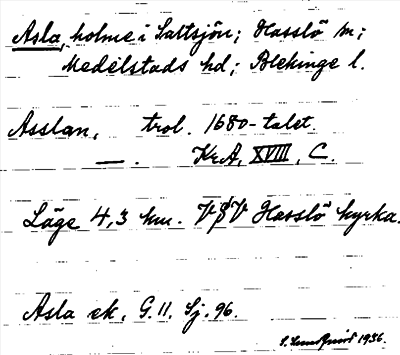 Asla, holme i Saltsjön; Hasslö sn;
Medelstads hd; Blekinge l.
Asslan, trol. 1680-talet.
— . KrA, XVIII, C.
Läge 4,3 km. VSV Hasslö kyrka.
Asla ek, G.11. Sj. 96.
S. Sundqvist 1936.